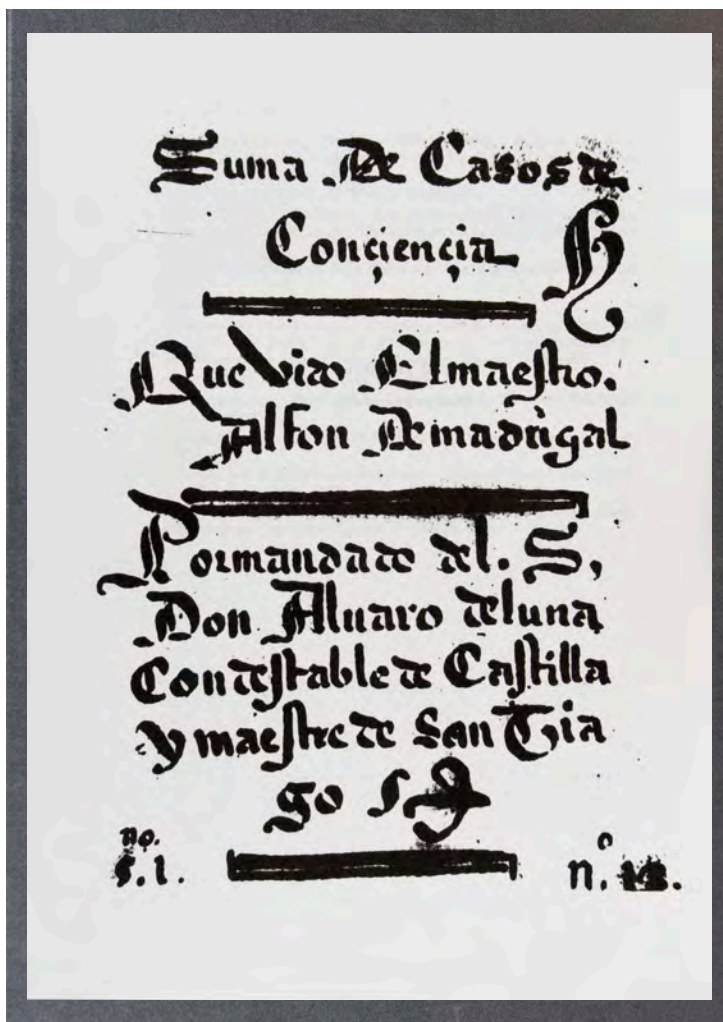 Suma De Casos de
Conçiençia
Que vido El maestro.
Alfon De madrigal
Por mandado del. S,
Don Aluaro de luna
Condestable de Castilla
y maestre de San Tia
go
no.
s.l. n.º